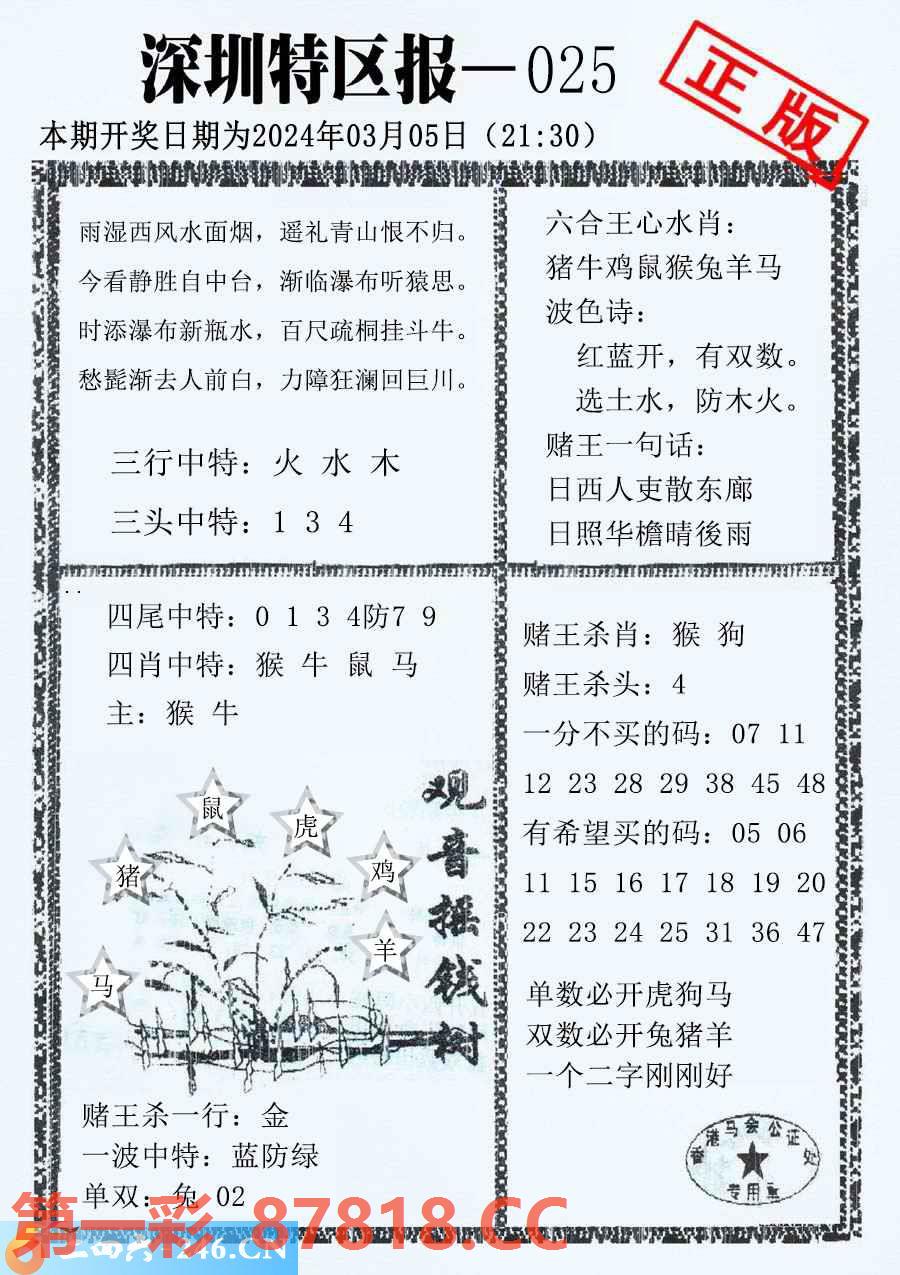 深圳特区报—025
正版
本期开奖日期为2024年03月05日（21:30）
雨湿西风水面烟，遥礼青山恨不归。
今看静胜自中台，渐临瀑布听猿思。
时添瀑布新瓶水，百尺疏桐挂斗牛。
愁髭渐去人前白，力障狂澜回巨川。
三行中特：火 水 木
三头中特：1 3 4
六合王心水肖：
猪牛鸡鼠猴兔羊马
波色诗：
红蓝开，有双数。
选土水，防木火。
赌王一句话：
日西人吏散东廊
日照华檐晴後雨
四尾中特：0 1 3 4防7 9
四肖中特：猴 牛 鼠 马
主：猴 牛
鼠
虎
猪
鸡
羊
马
观音摇钱树
赌王杀一行：金
一波中特：蓝防绿
单双：兔 02
赌王杀肖：猴 狗
赌王杀头：4
一分不买的码：07 11
12 23 28 29 38 45 48
有希望买的码：05 06
11 15 16 17 18 19 20
22 23 24 25 31 36 47
单数必开虎狗马
双数必开兔猪羊
一个二字刚刚好
香港马会公证处
专用章
第一彩 87818.CC
246.CN